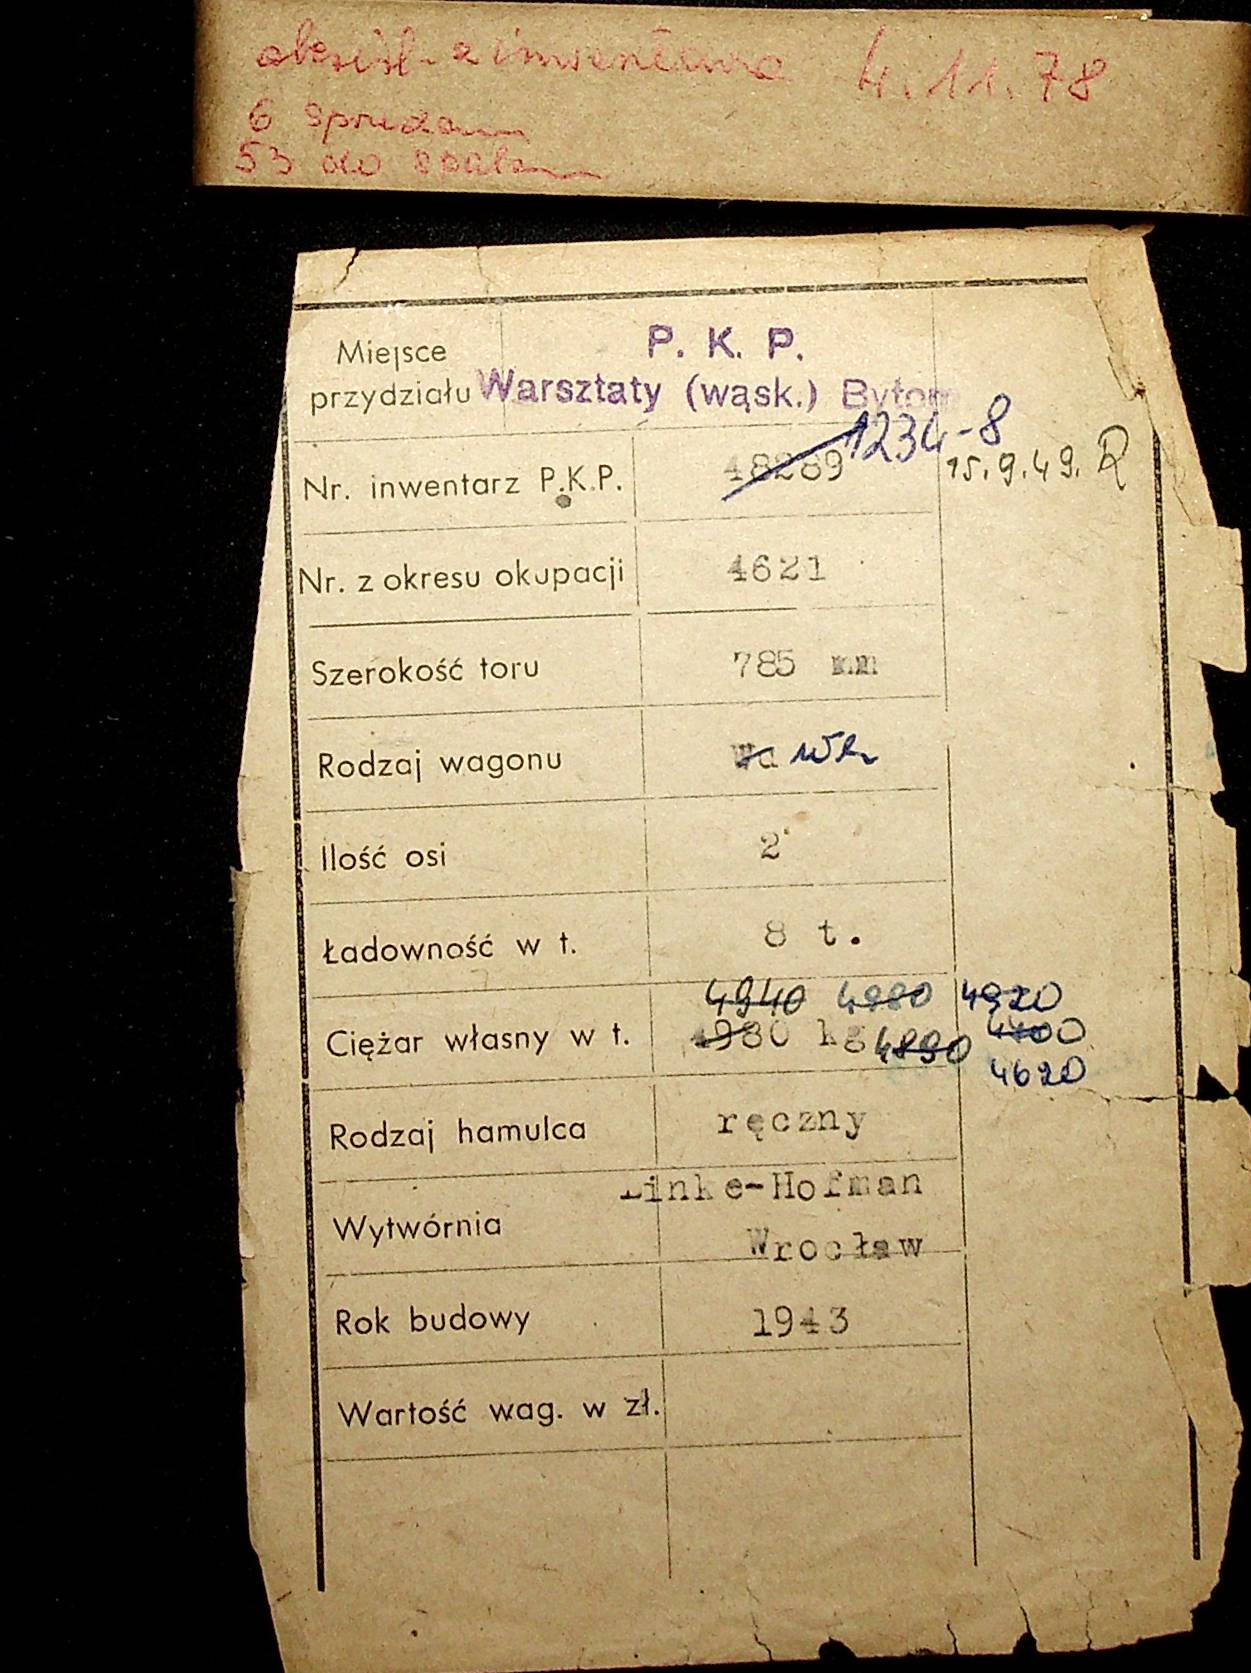 4.11.78
6
53 do
P. K. P.
Miejsce
przydziału Warsztaty (wąsk.) Bytom
1234-8
Nr. inwentarz P.K.P. 48289 15.9.49. R
Nr. z okresu okupacji 4621
Szerokość toru 785 mm
Rodzaj wagonu
Ilość osi 2
Ładowność w t. 8 t.
4940 4980 4920
Ciężar własny w t. 4980 kg 4890 4400
4620
Rodzaj hamulca ręczny
Linke-Hofman
Wytwórnia
Wrocław
Rok budowy 1943
Wartość wag. w zł.